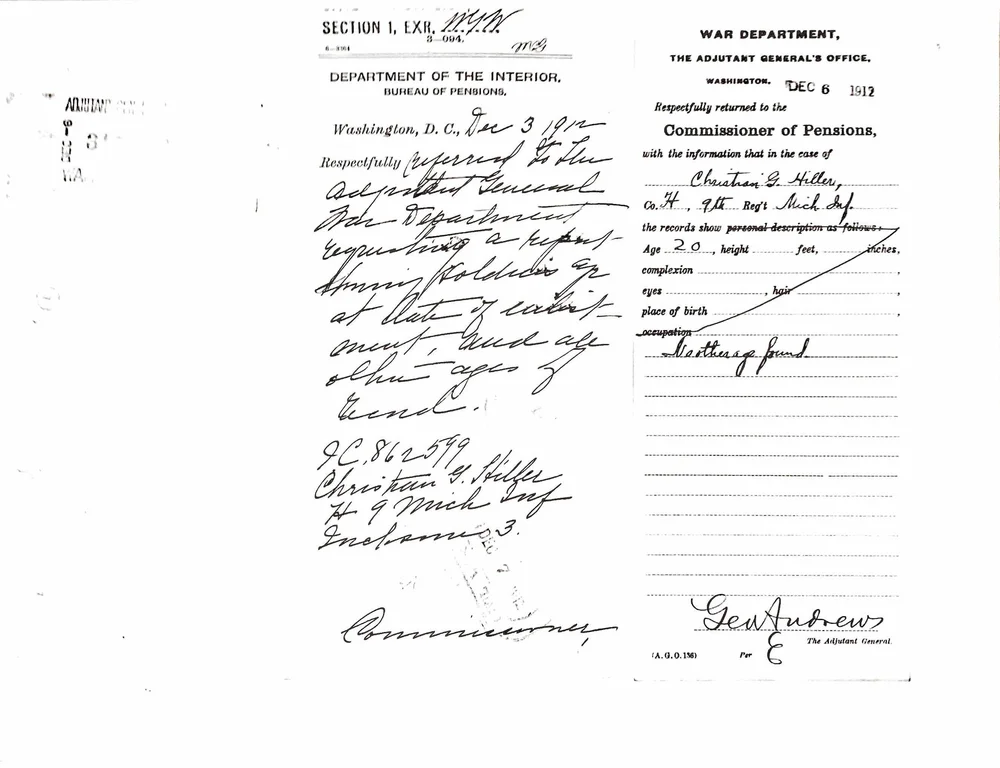 ADJUTANT
DEC -6
3
WA
SECTION 1, EXR. W.Y.W.
3—094.
MG
DEPARTMENT OF THE INTERIOR,
BUREAU OF PENSIONS,
Washington, D. C., Dec 3 1912
Respectfully referred to the
Adjutant General
War Department
requesting a report
showing soldiers age
at date of enlist-
ment, and all
other ages if
found.
I C. 862599
Christian G. Hiller
H 9 Mich Inf
Inclosure 3.
DEC
Commissioner,
WAR DEPARTMENT,
THE ADJUTANT GENERAL'S OFFICE,
WASHINGTON, DEC 6 1912
Respectfully returned to the
Commissioner of Pensions,
with the information that in the case of
Christian G. Hiller,
Co. H, 9th Reg't Mich Inf.
the records show personal description as follows:
Age 20, height feet, inches,
complexion ,
eyes , hair ,
place of birth ,
occupation
No other age found
Geo Andrews
The Adjutant General.
(A. G. O. 156) Per E